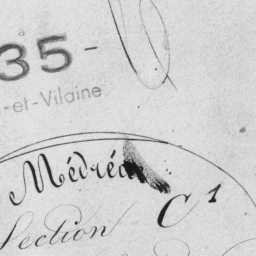 35-
-et-Vilaine
Médréac
Section C 1